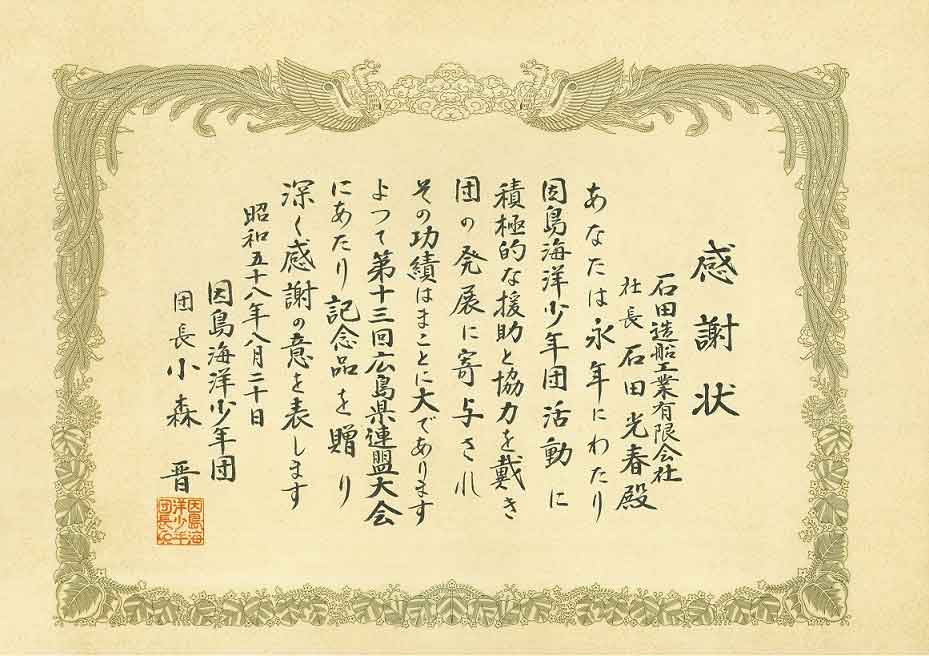 感謝状
石田造船工業有限会社
社長 石田光春殿
あなたは永年にわたり
因島海洋少年団活動に
積極的な援助と協力を戴き
団の発展に寄与され
その功績はまことに大であります
よつて第十三回広島県連盟大会
にあたり記念品を贈り
深く感謝の意を表します
昭和五十八年八月二十日
因島海洋少年団
団長 小森 晋
因島海
洋少年
団長之